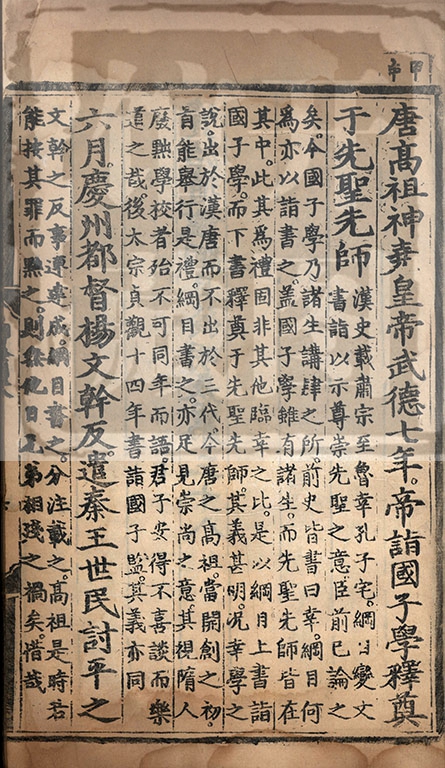 唐高祖神堯皇帝武德七年。帝詣國子學釋奠
于先聖先師
漢史載肅宗至魯幸孔子宅。綱目變文
書詣以示尊崇先聖之意。臣前已論之
矣。今國子學乃諸生講肄之所。前史皆書曰幸。綱目何
為亦以詣書之。蓋國子學雖有諸生。而先聖先師皆在
其中。此其爲禮固非其他臨幸之比。是以綱目上書詣
國子學。而下書釋奠于先聖先師。其義甚明。况幸學之
說。出於漢唐而不出於三代。今唐之高祖。當開創之初。
首能舉行是禮。綱目書之。亦足見崇尚之意。其視隋人
廢黜學校者。殆不可同年而語。君子安得不喜談而樂
道之哉。後太宗貞觀十四年。書詣國子監。其義亦同
六月慶州都督楊文幹反。遣秦王世民討平之
文幹之反事連建成。綱目書之。分注載之。高祖是時若
能按其罪而黜之。則無他日兄弟相殘之禍矣。惜哉